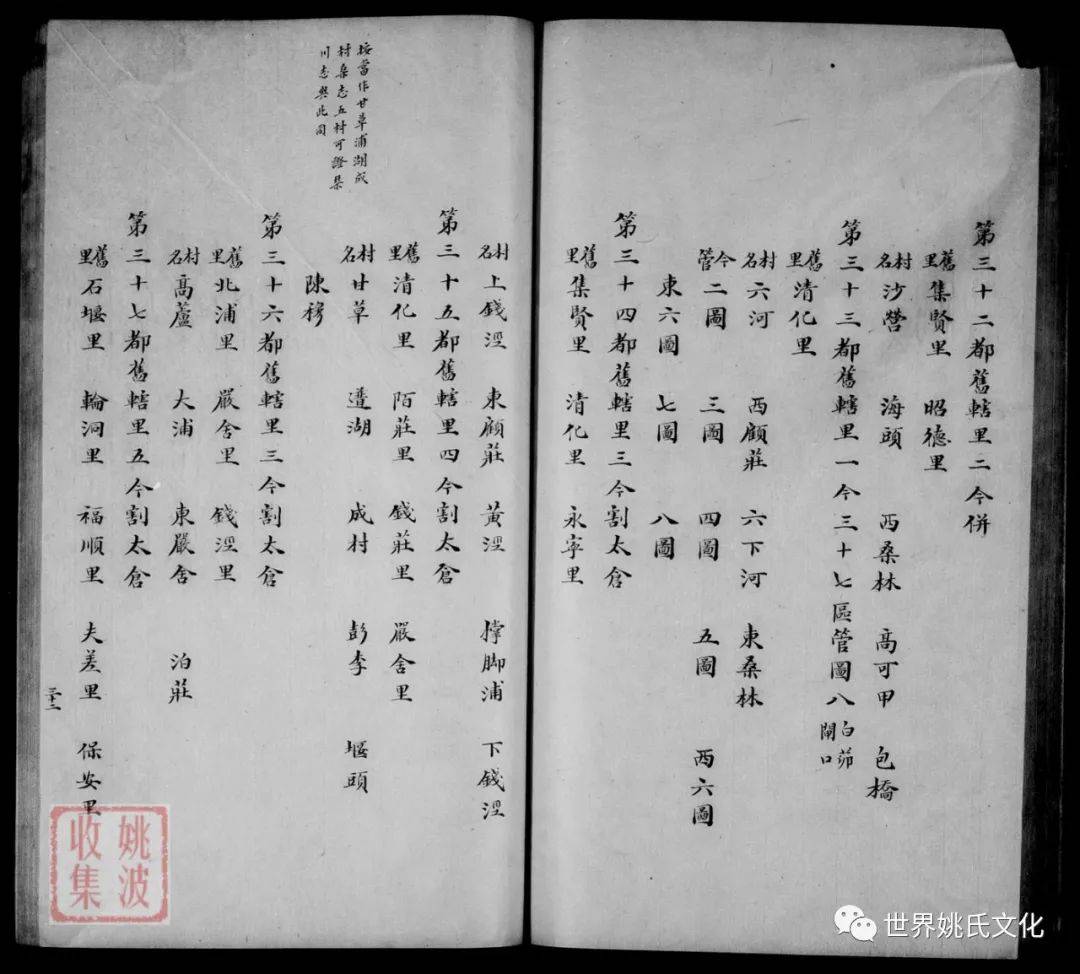 第三十二都舊轄里二今併
舊里 集賢里 昭德里
村名 沙營 海頭 西桑林 高可甲 包橋
第三十三都舊轄里一今三十七區管圖八白茆閘口
舊里 清化里
村名 六河 西顧莊 六下河 東桑林
今管 二圖 三圖 四圖 五圖 西六圖
東六圖 七圖 八圖
第三十四都舊轄里三今割太倉
舊里 集賢里 清化里 永寧里
村名 上錢涇 東顧莊 黃涇 撑脚浦 下錢涇
第三十五都舊轄里四今割太倉
舊里 清化里 陌莊里 錢莊里 嚴舍里
村名 甘草 湖 成村 彭李 堰頭
陳穆
第三十六都舊轄里三今割太倉
舊里 北浦里 嚴舍里 錢涇里
村名 高蘆 大浦 東嚴舍 泊莊
第三十七都舊轄里五今割太倉
舊里 石堰里 輪洞里 福順里 夫差里 保安里
按當作甘草浦湖成
村桑志五村可證
川志與此同
三十二
姚波
收集
世界姚氏文化